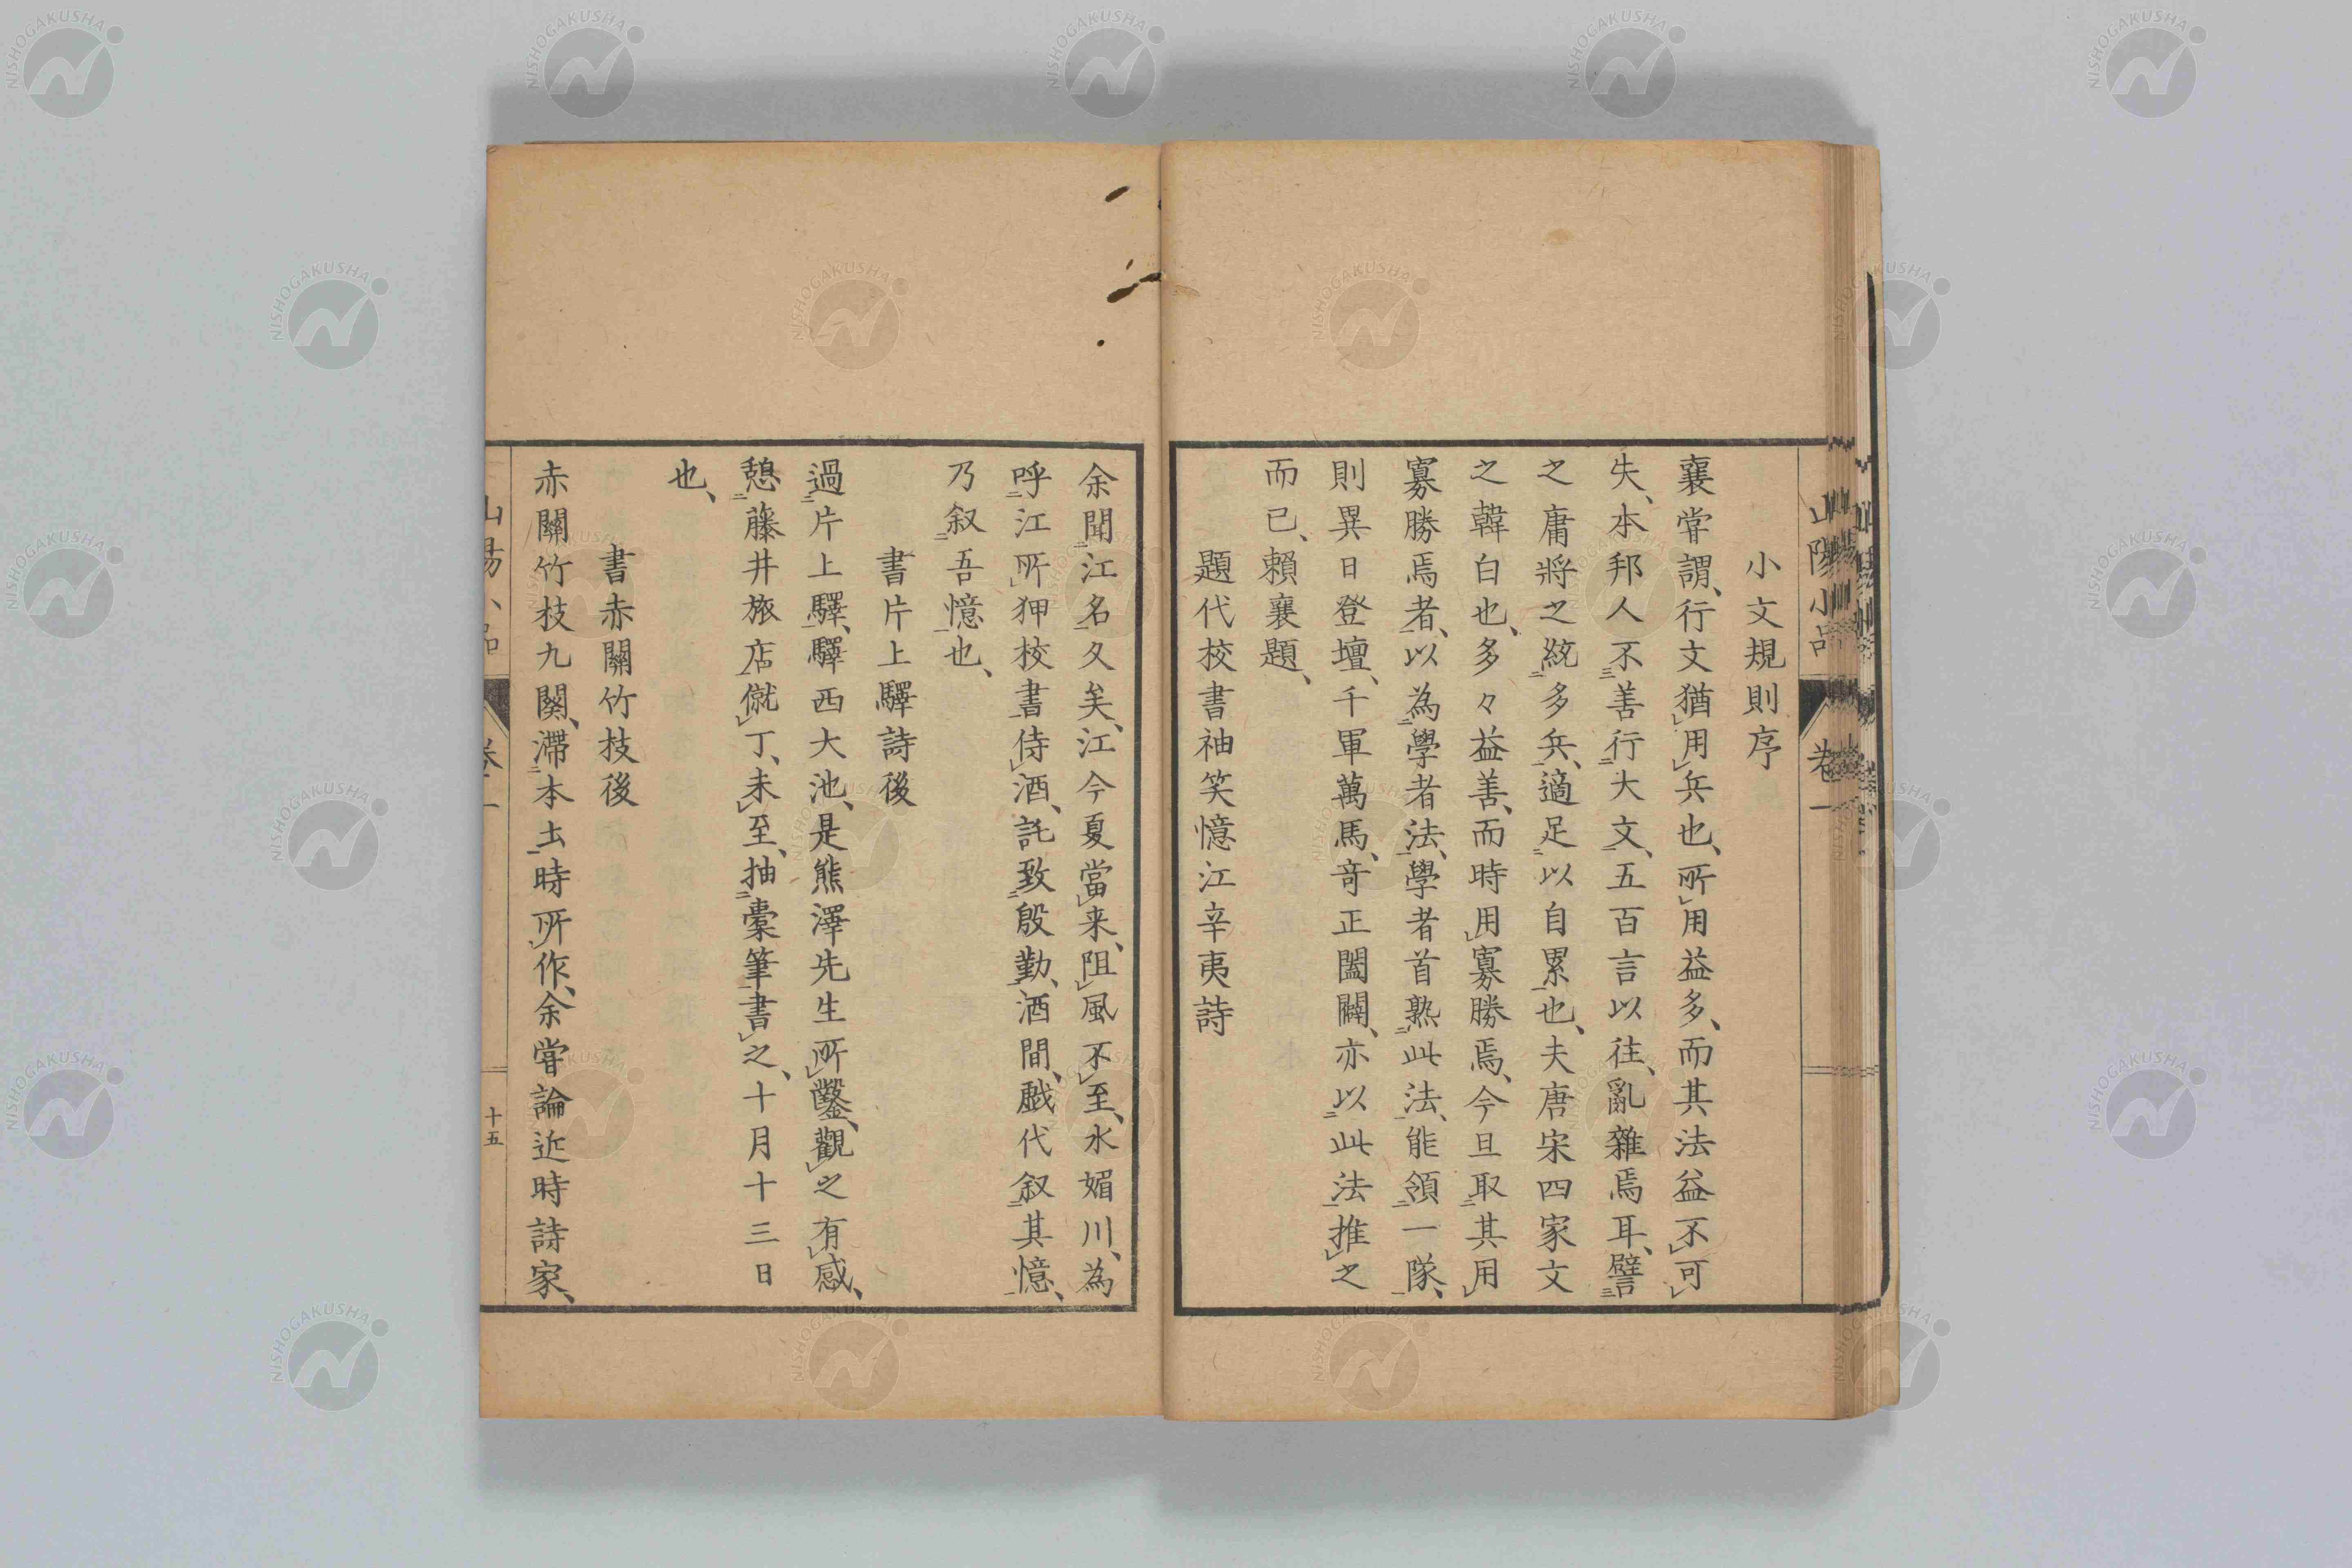 山陽小品 卷一
小文規則序
襄甞謂、行文猶用兵也、所用益多、而其法益不可
失、本邦人不善行大文、五百言以徃、亂雜焉耳、譬
之庸將之統多兵、適足以自累也、夫唐宋四家文
之韓白也、多々益善、而時用寡勝焉、今旦取其用
寡勝焉者、以為學者法、學者首熟此法、能領一隊、
則異日登壇、千軍萬馬、竒正闔闢、亦以此法推之
而已、賴襄題、
題代校書袖笑憶江辛夷詩
余聞江名久矣、江今夏當来、阻風不至、水媚川、為
呼江所狎校書侍酒、託致殷勤、酒間、戯代叙其憶、
乃叙吾憶也、
書片上驛詩後
過片上驛、驛西大池、是熊澤先生所鑿、觀之有感、
憩藤井旅店僦丁、未至、抽橐筆書之、十月十三日
也、
書赤關竹枝後
赤關竹枝九闋、滯本土時所作、余甞論近時詩家、
十五
NISHOGAKUSHA